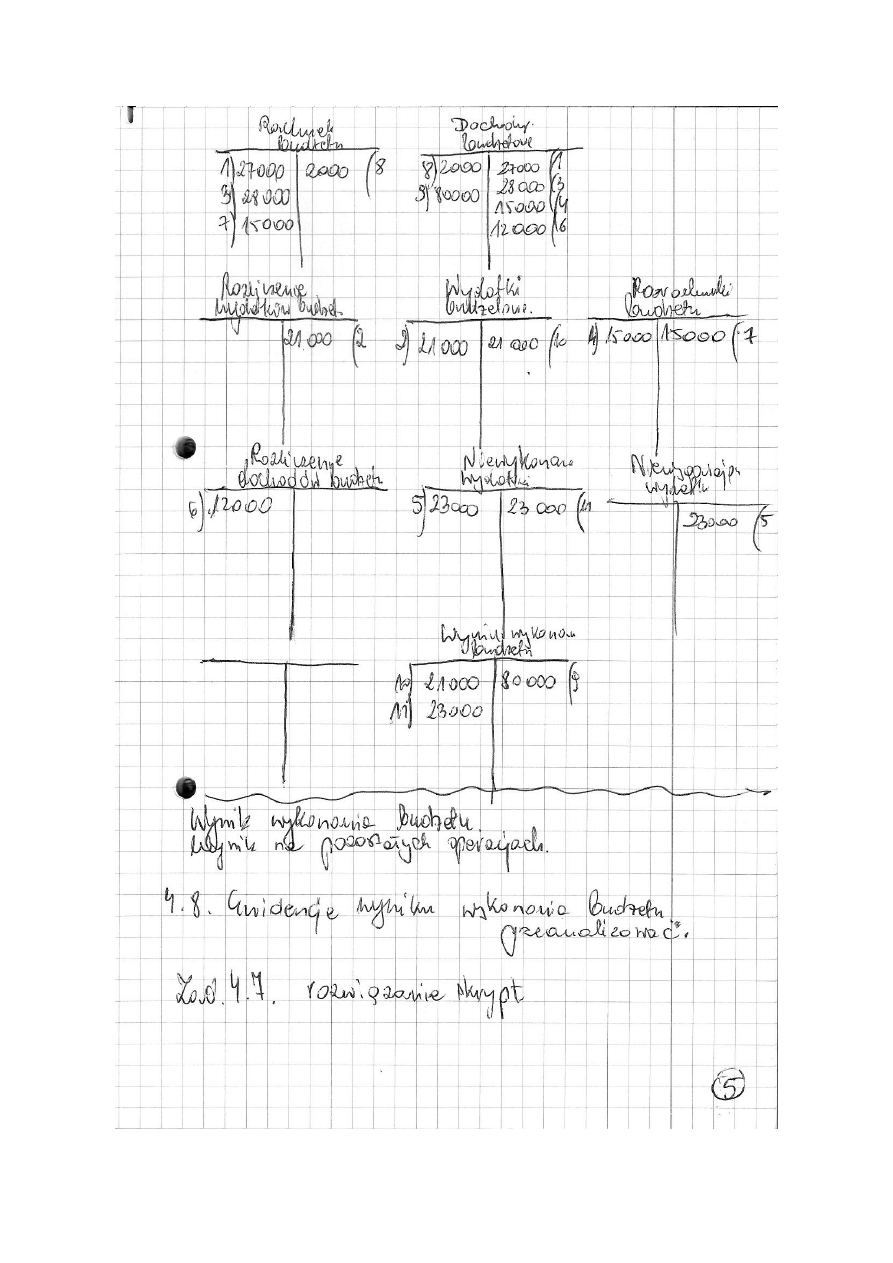 Rachunek Dochody
budżetu budżetowe
1) 27000 2000 (8 8) 2000 27000 (1
3) 28000 9) 80000 28000 (3
7) 15000 15000 (4
12000 (6
Rozliczenie Wydatki Rozrachunki
wydatków budżet. budżetowe. budżetu
21 000 (2 2) 21000 21 000 (10 4) 15000 15000 (7
Rozliczenie Niewykonane Niewygasające
dochodów budżetu wydatki wydatki
6) 12000 5) 23000 23 000 (11 23000 (5
Wynik wykonania
budżetu
10) 21000 80000 (9
11) 23000
Wynik wykonania budżetu.
Wynik na pozostałych operacjach.
4.8. Ewidencję wyniku wykonania budżetu
przeanalizować.
Zad. 4.7. rozwiązanie skrypt
5